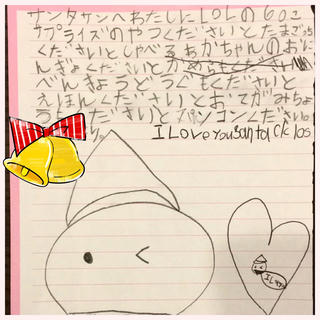 サンタサンへわたしにLOLの60こ
サプライズのやつくださいとたまごっち
くださいとしゃべるあかちゃんのおに
んぎょくださいと
べんきょうどうぐもくださいと
えほんくださいとおてがみちょ
うくださいとパソコンください。
I Love You Santa Cklos
I L